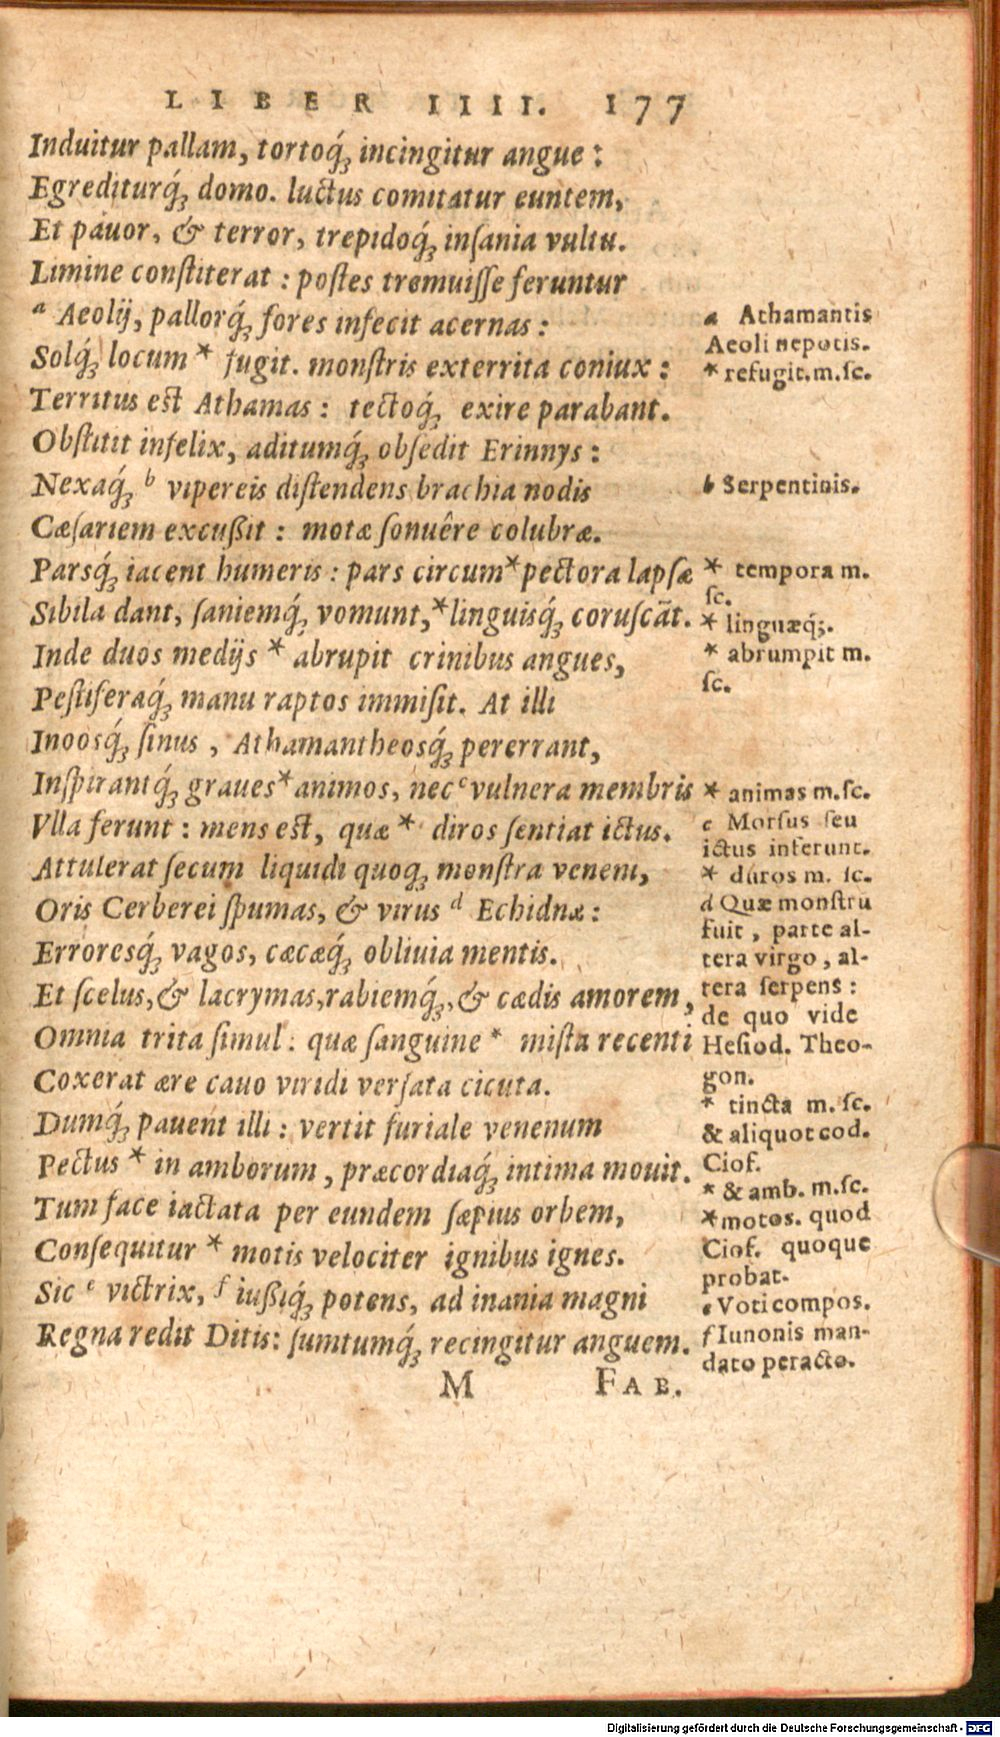 LIBER IIII. 177
Induitur pallam, tortoq́ꝫ incingitur angue:
Egrediturq́ꝫ domo. luctus comitatur euntem,
Et pauor, & terror, trepidoq́ꝫ inſania vultu.
Limine conſtiterat: poſtes tremuiſſe feruntur
a Aeolij, pallorq́ꝫ fores infecit acernas:
Solq́ꝫ locum * fugit. monſtris exterrita coniux:
Territus est Athamas: tectoq́ꝫ exire parabant.
Obſtitit infelix, aditumq́ꝫ obſedit Erinnys:
Nexaq́ꝫ b vipereis diſtendens brachia nodis
Cæſariem excußit: motæ ſonuêre colubræ.
Parsq́ꝫ iacent humeris: pars circum * pectora lapſæ
Sibila dant, ſaniemq́ꝫ vomunt, * linguisq́ꝫ coruſcãt.
Inde duos medijs * abrupit crinibus angues,
Peſtiferaq́ꝫ manu raptos immiſit. At illi
Inoosq́ꝫ ſinus, Athamantheosq́ꝫ pererrant,
Inſpirantq́ꝫ graues * animos, nec c vulnera membris
Vlla ferunt: mens est, quæ * diros ſentiat ictus.
Attulerat ſecum liquidi quoqꝫ monſtra veneni,
Oris Cerberei ſpumas, & virus d Echidnæ:
Erroresq́ꝫ vagos, cæcæq́ꝫ obliuia mentis.
Et ſcelus, & lacrymas, rabiemq́ꝫ, & cædis amorem,
Omnia trita ſimul: quæ ſanguine * miſta recenti
Coxerat ære cauo viridi verſata cicuta.
Dumq́ꝫ pauent illi: vertit furiale venenum
Pectus * in amborum, præcordiaq́ꝫ intima mouit.
Tum face iactata per eundem ſæpius orbem,
Conſequitur * motis velociter ignibus ignes.
Sic e victrix, f iußiq́ꝫ potens, ad inania magni
Regna redit Ditis: ſumtumq́ꝫ recingitur anguem.
M FAB.
a Athamantis
Aeoli nepotis.
* refugit. m. ſc.
b Serpentinis.
* tempora m.
ſc.
* linguæq́;.
* abrumpit m.
ſc.
* animas m. ſc.
c Morſus ſeu
ictus inferunt.
* duros m. ſc.
d Quæ monſtrū
fuit, parte al-
tera virgo, al-
tera ſerpens:
de quo vide
Heſiod. Theo-
gon.
* tincta m. ſc.
& aliquot cod.
Ciof.
* & amb. m. ſc.
* motos. quod
Ciof. quoque
probat.
e Voti compos.
f Iunonis man-
dato peracto.
Digitalisierung gefördert durch die Deutsche Forschungsgemeinschaft - DFG